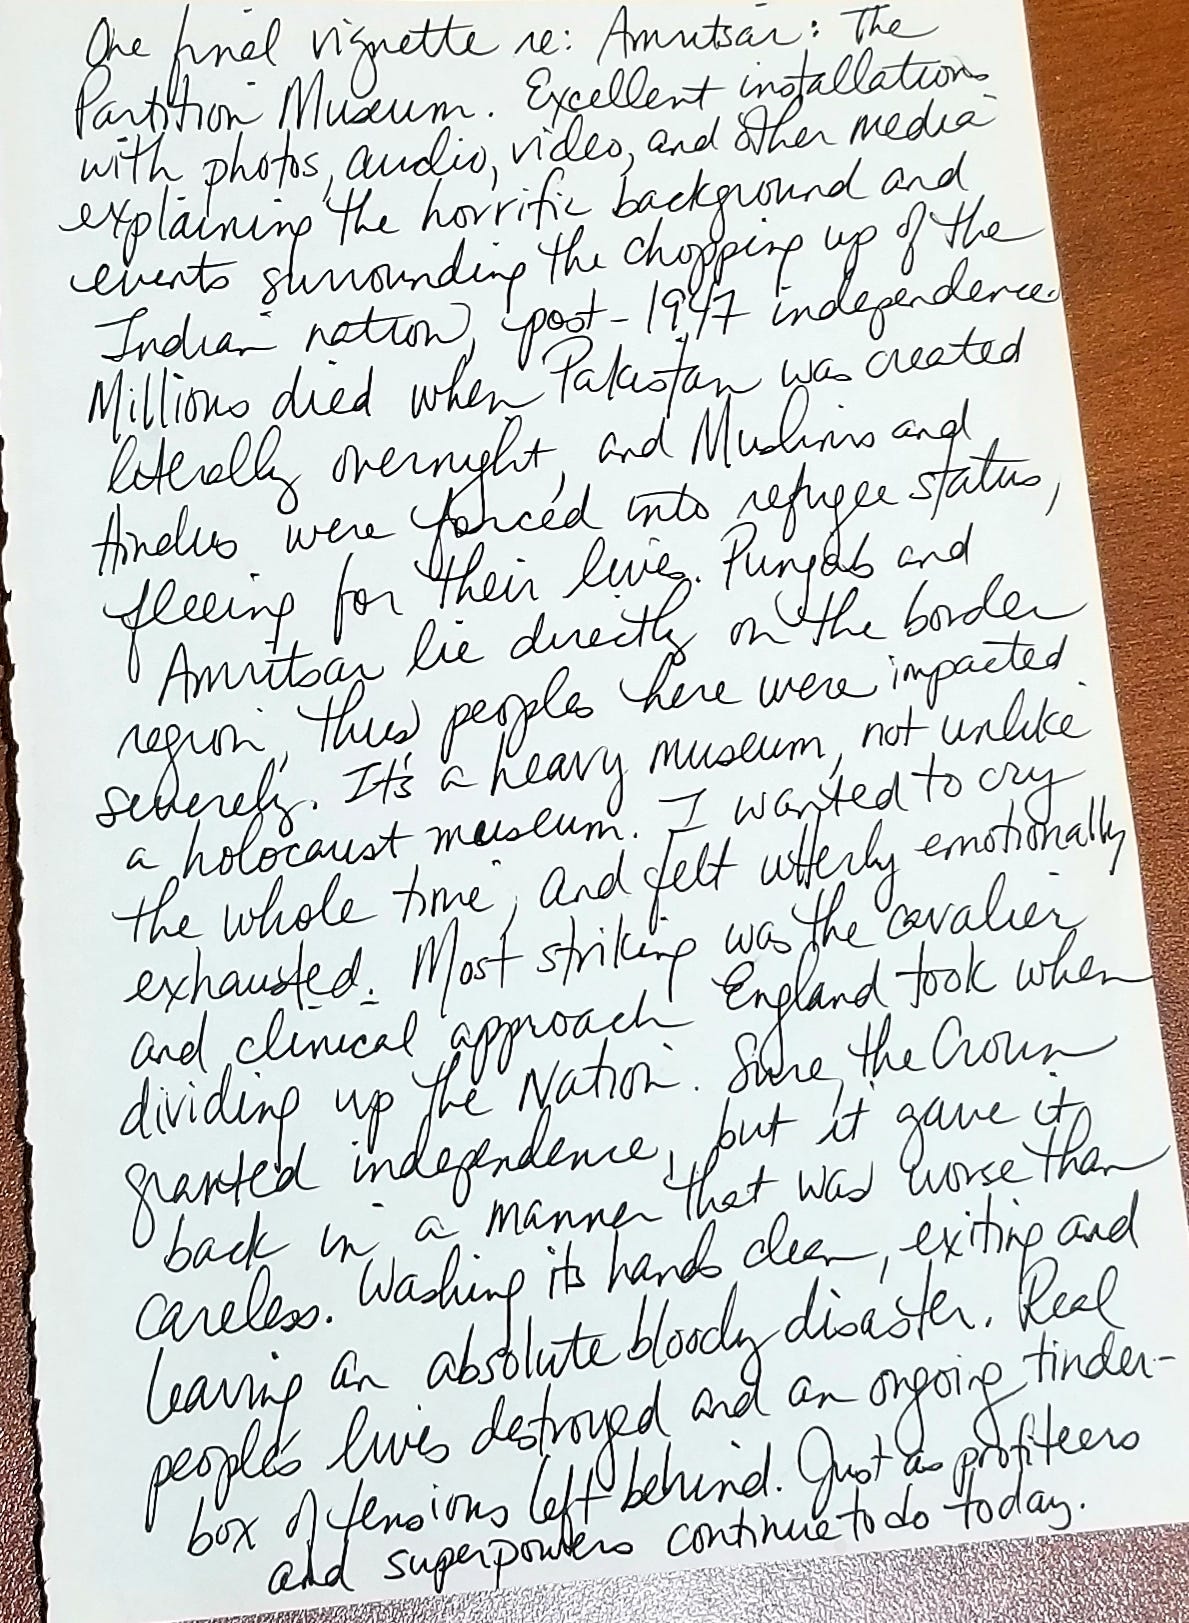 One final vignette re: Amritsar: The
Partition Museum. Excellent installations
with photos, audio, video, and other media
explaining the horrific background and
events surrounding the chopping up of the
Indian nation, post-1947 independence.
Millions died when Pakistan was created
literally overnight, and Muslims and
Hindus were forced into refugee status,
fleeing for their lives. Punjab and
Amritsar lie directly on the border
region, thus peoples here were impacted
severely. It's a heavy museum, not unlike
a holocaust museum. I wanted to cry
the whole time, and felt utterly emotionally
exhausted. Most striking was the cavalier
and clinical approach England took when
dividing up the Nation. Sure, the Crown
granted independence, but it gave it
back in a manner that was worse than
careless. Washing its hands clean, exiting and
leaving an absolute bloody disaster. Real
people's lives destroyed and an ongoing tinder-
box of tensions left behind. Just as profiteers
and superpowers continue to do today.